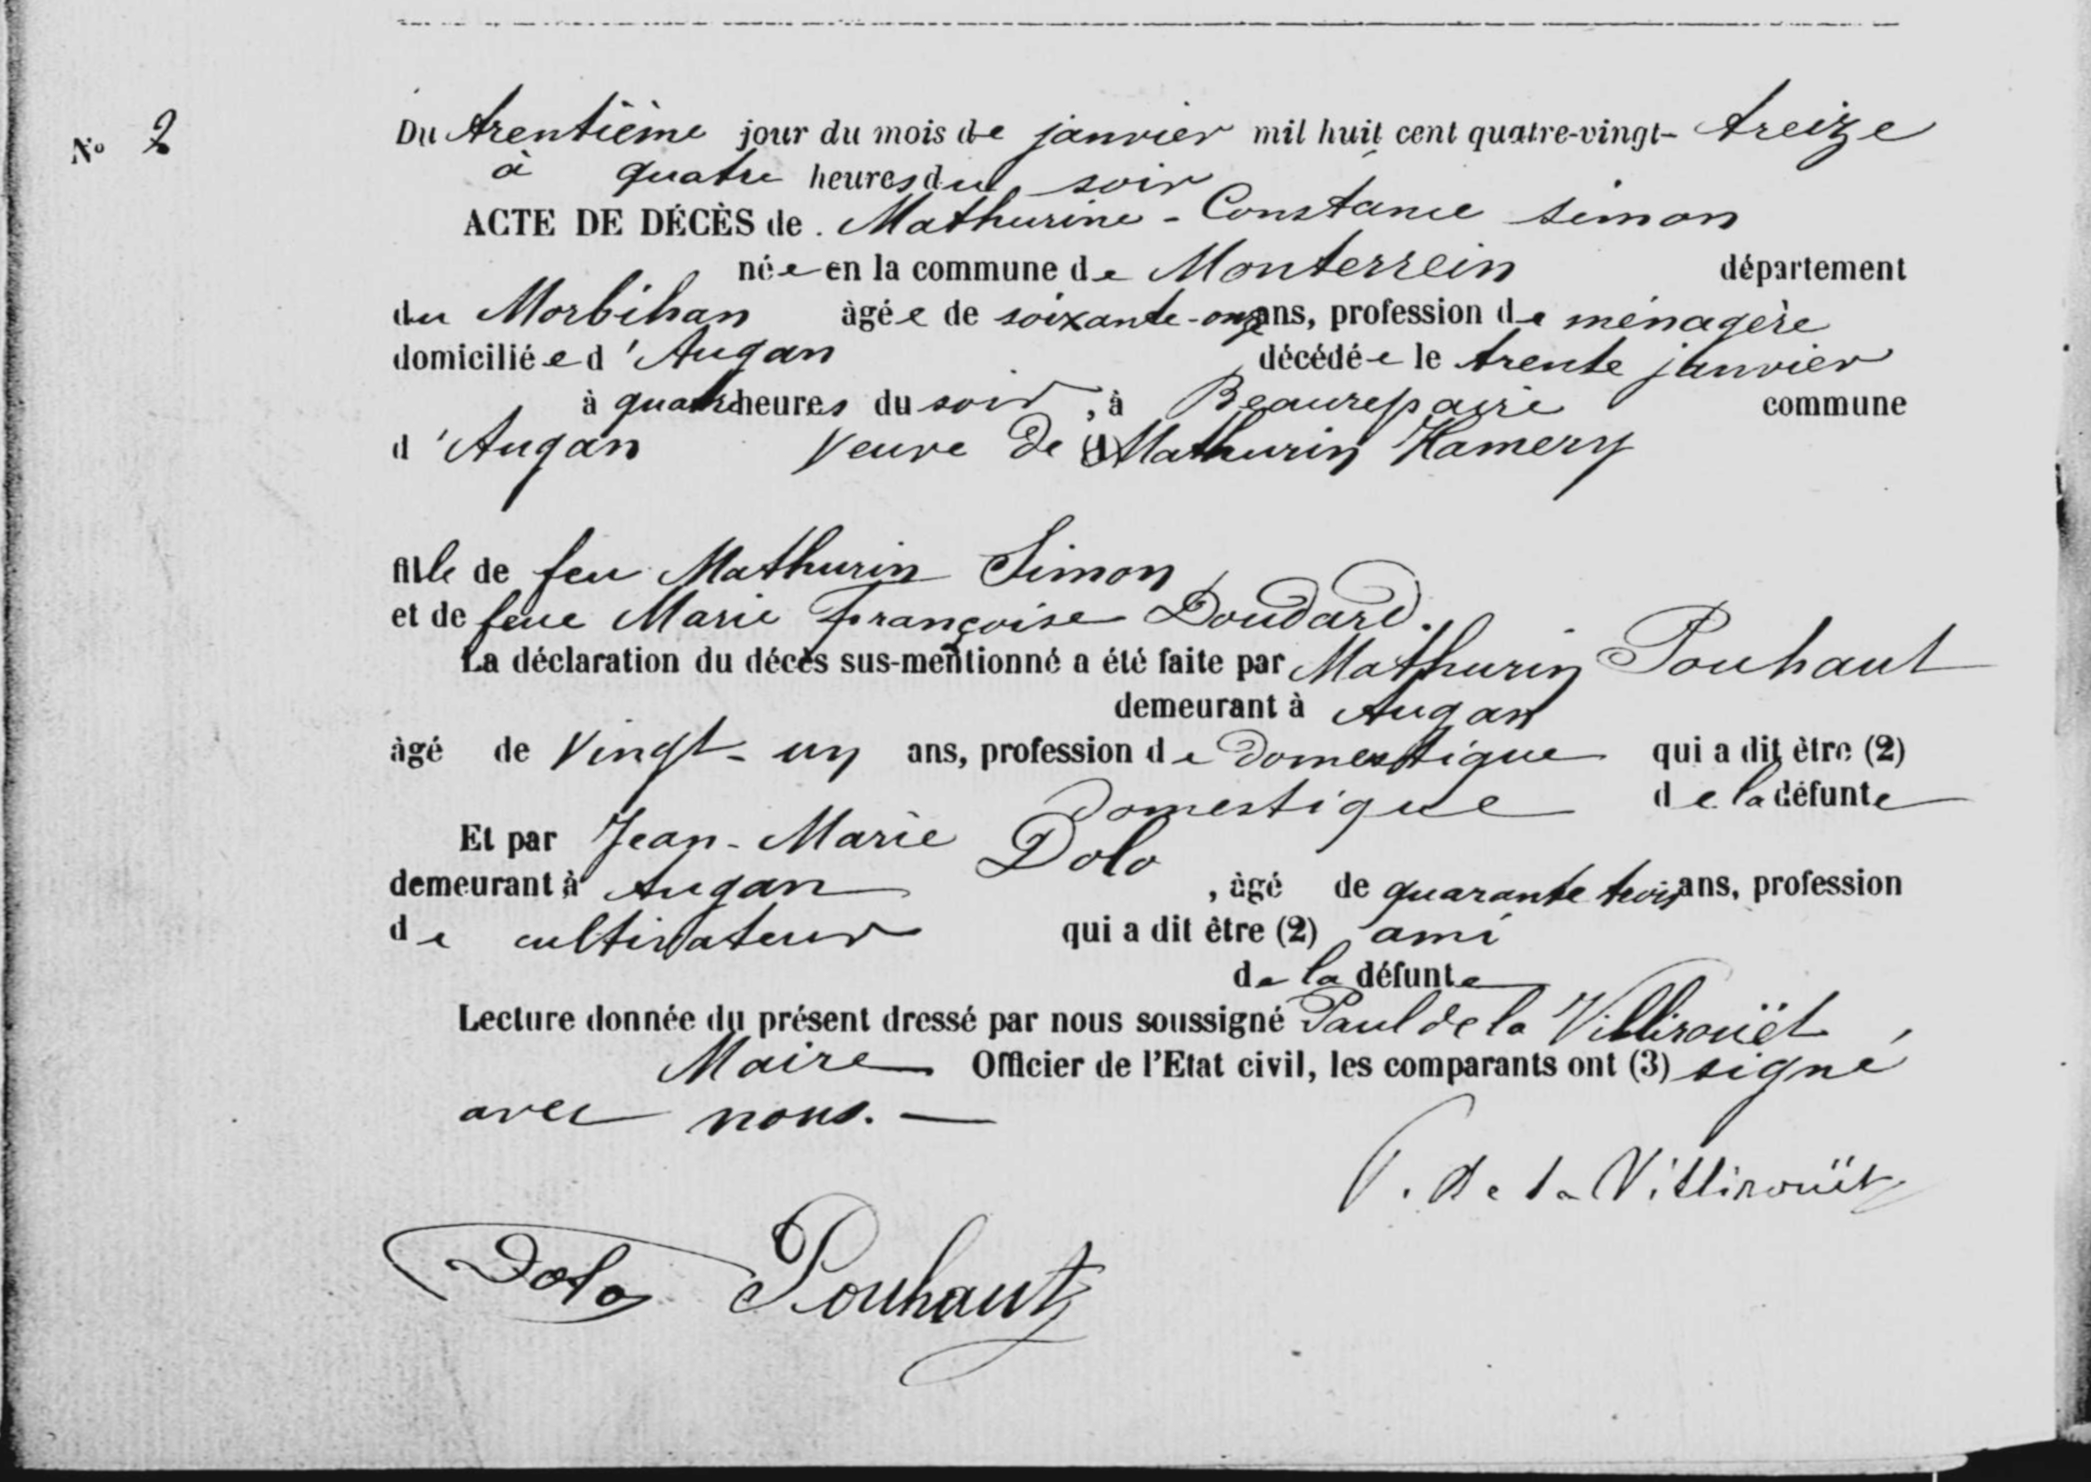 N° 2
Du trentième jour du mois de janvier mil huit cent quatre-vingt- treize
à quatre heures du soir
ACTE DE DÉCÈS de Mathurine - Constance Simon
née en la commune de Monterrein département
du Morbihan âgée de soixante-onze ans, profession de ménagère
domiciliée d'Augan décédée le trente janvier
à quatre heures du soir, à Beaurepaire commune
d'Augan Veuve de (1) Mathurin Hamery
fille de feu Mathurin Simon
et de feue Marie Françoise Doudard.
La déclaration du décès sus-mentionné a été faite par Mathurin Pouhaut
demeurant à Augan
âgé de Vingt-un ans, profession de domestique qui a dit être (2)
domestique de la défunte
Et par Jean-Marie Dolo
demeurant à Augan, âgé de quarante trois ans, profession
de cultivateur qui a dit être (2) ami
de la défunte
Lecture donnée du présent dressé par nous soussigné Paul de la Villirouët
Maire Officier de l'Etat civil, les comparants ont (3) signé
avec nous. —
P. de la Villirouët
Dolo Pouhaut